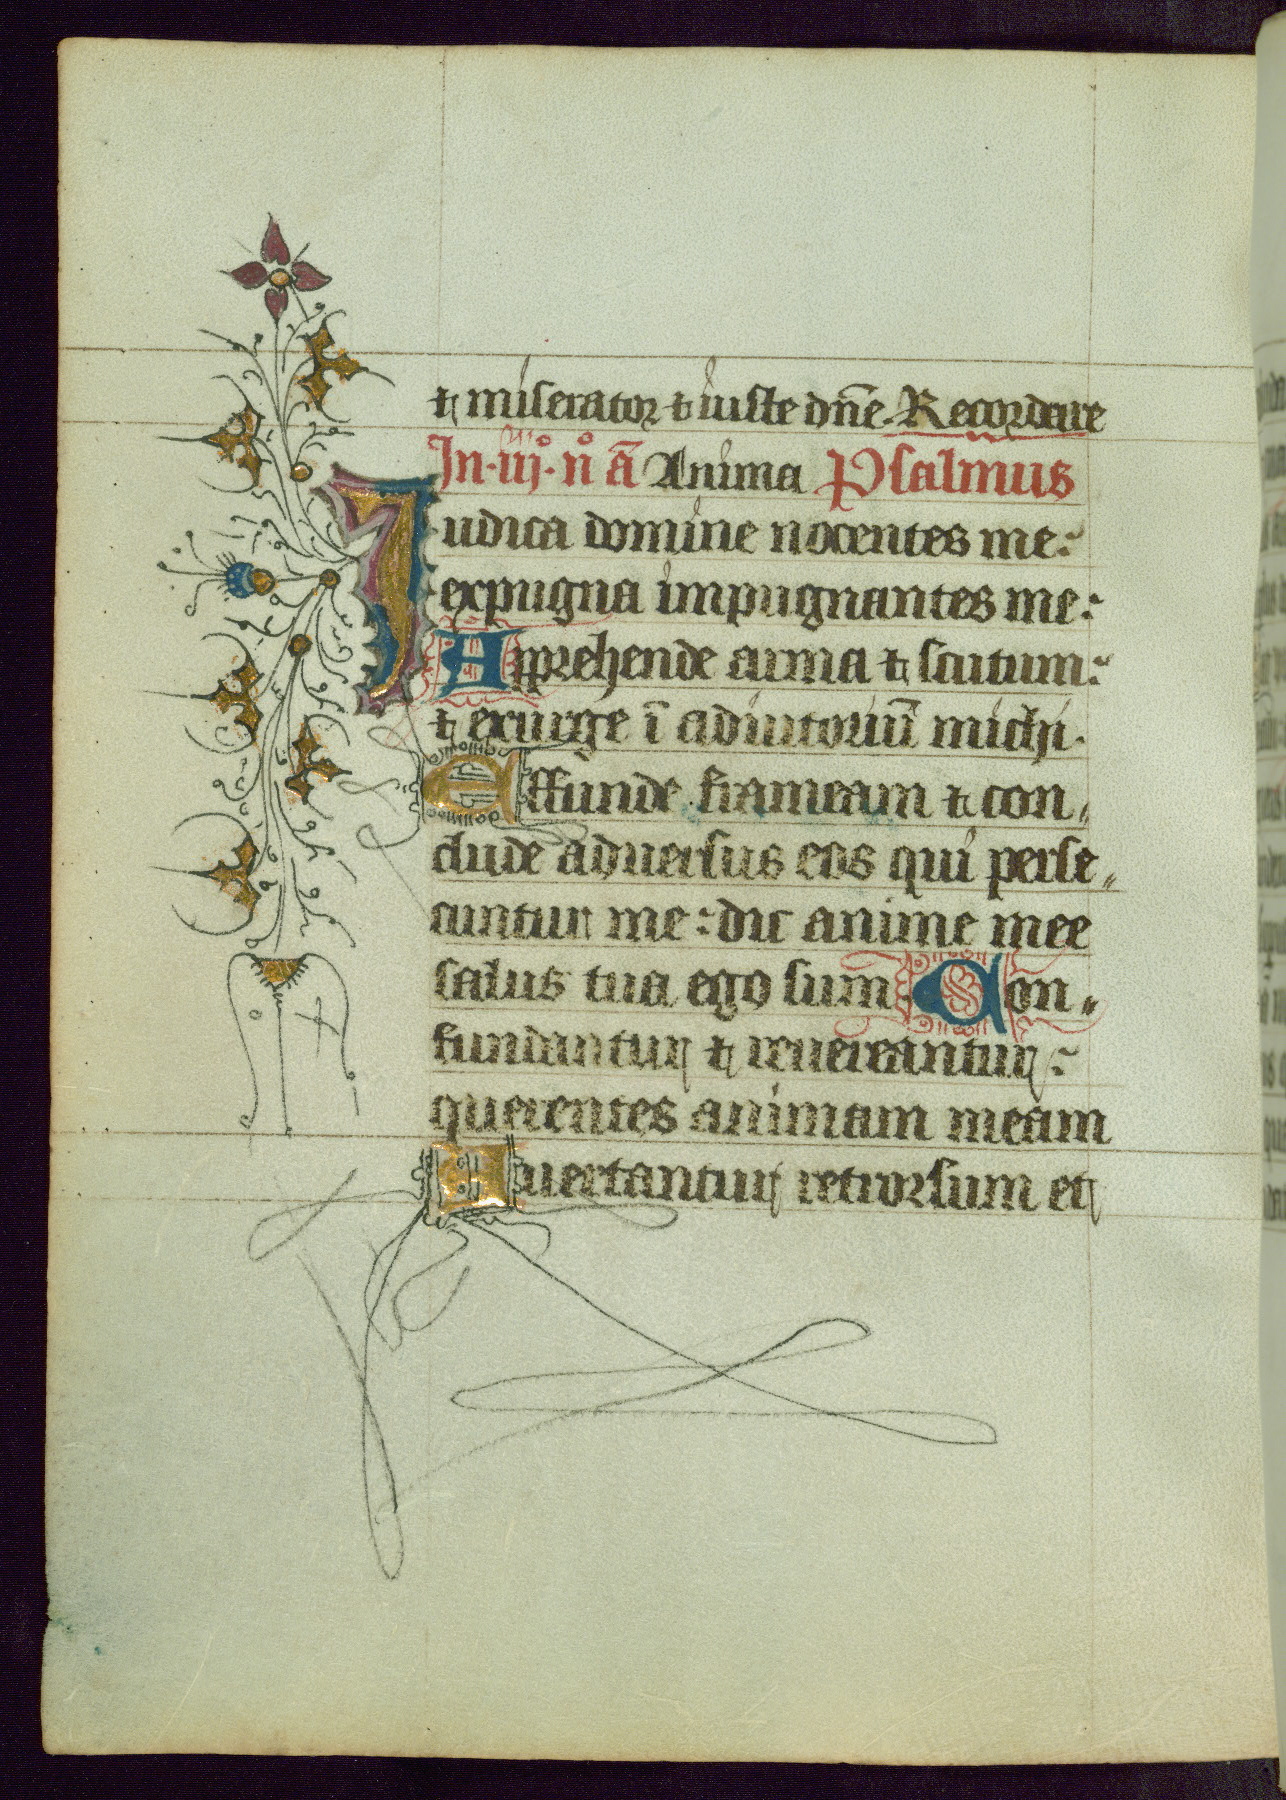 ⁊ miserator ⁊ iuste dn̄e. Recordare
In .iij.º nº ā Anima Psalmus
Iudica domine nocentes me:
expugna impugnantes me:
Apprehende arma ⁊ scutum:
⁊ exurge ī adiutoriū michi.
Effunde frameam ⁊ con„
clude aduersus eos qui perse„
cuntur me: dic anime mee
salus tua ego sum. Con„
fundantur ⁊ reuereantur:
querentes animam meam
Auertantur retrorsum et